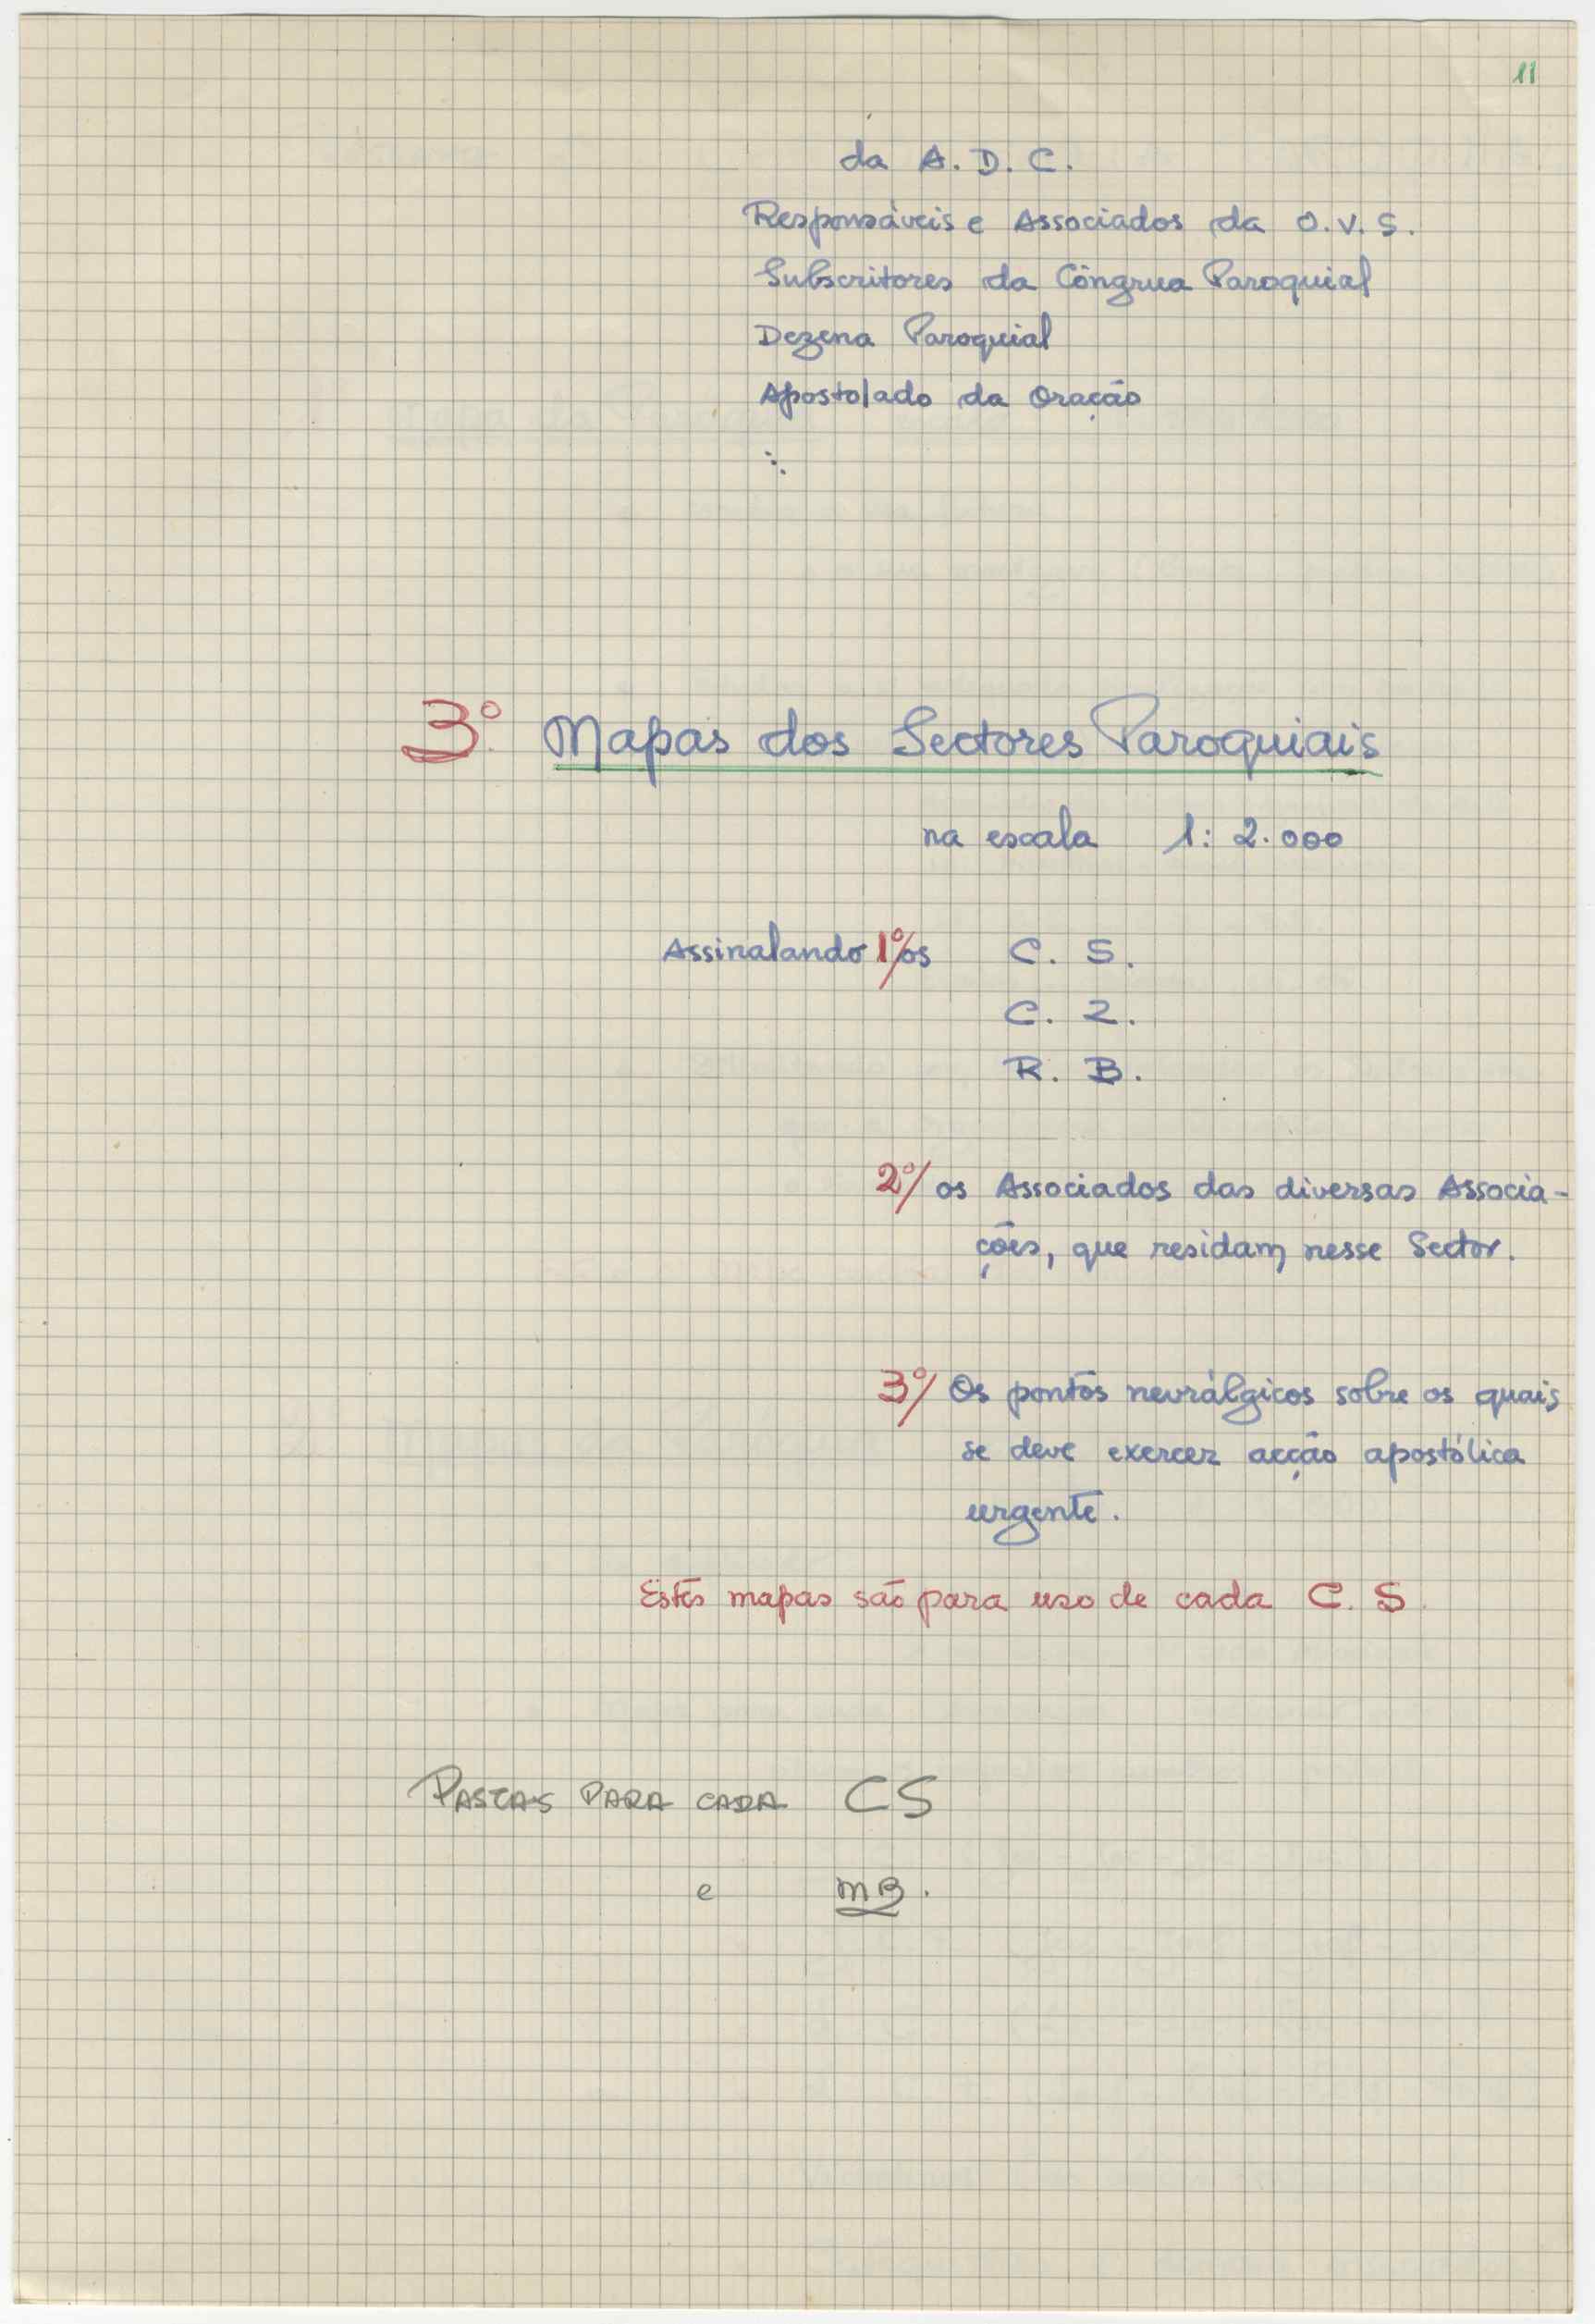 11
da A. D. C.
Responsáveis e Associados da O. V. S.
Subscritores da Côngrua Paroquial
Dezena Paroquial
Apostolado da Oração
3º Mapas dos Sectores Paroquiais
na escala 1: 2.000
Assinalando 1º/ os C. S.
C. Z.
R. B.
2º/ os Associados das diversas Associa-
ções, que residam nesse Sector.
3º/ Os pontos nevrálgicos sobre os quais
se deve exercer acção apostólica
urgente.
Estes mapas são para uso de cada C. S.
PASTAS PARA CADA CS
e MB.